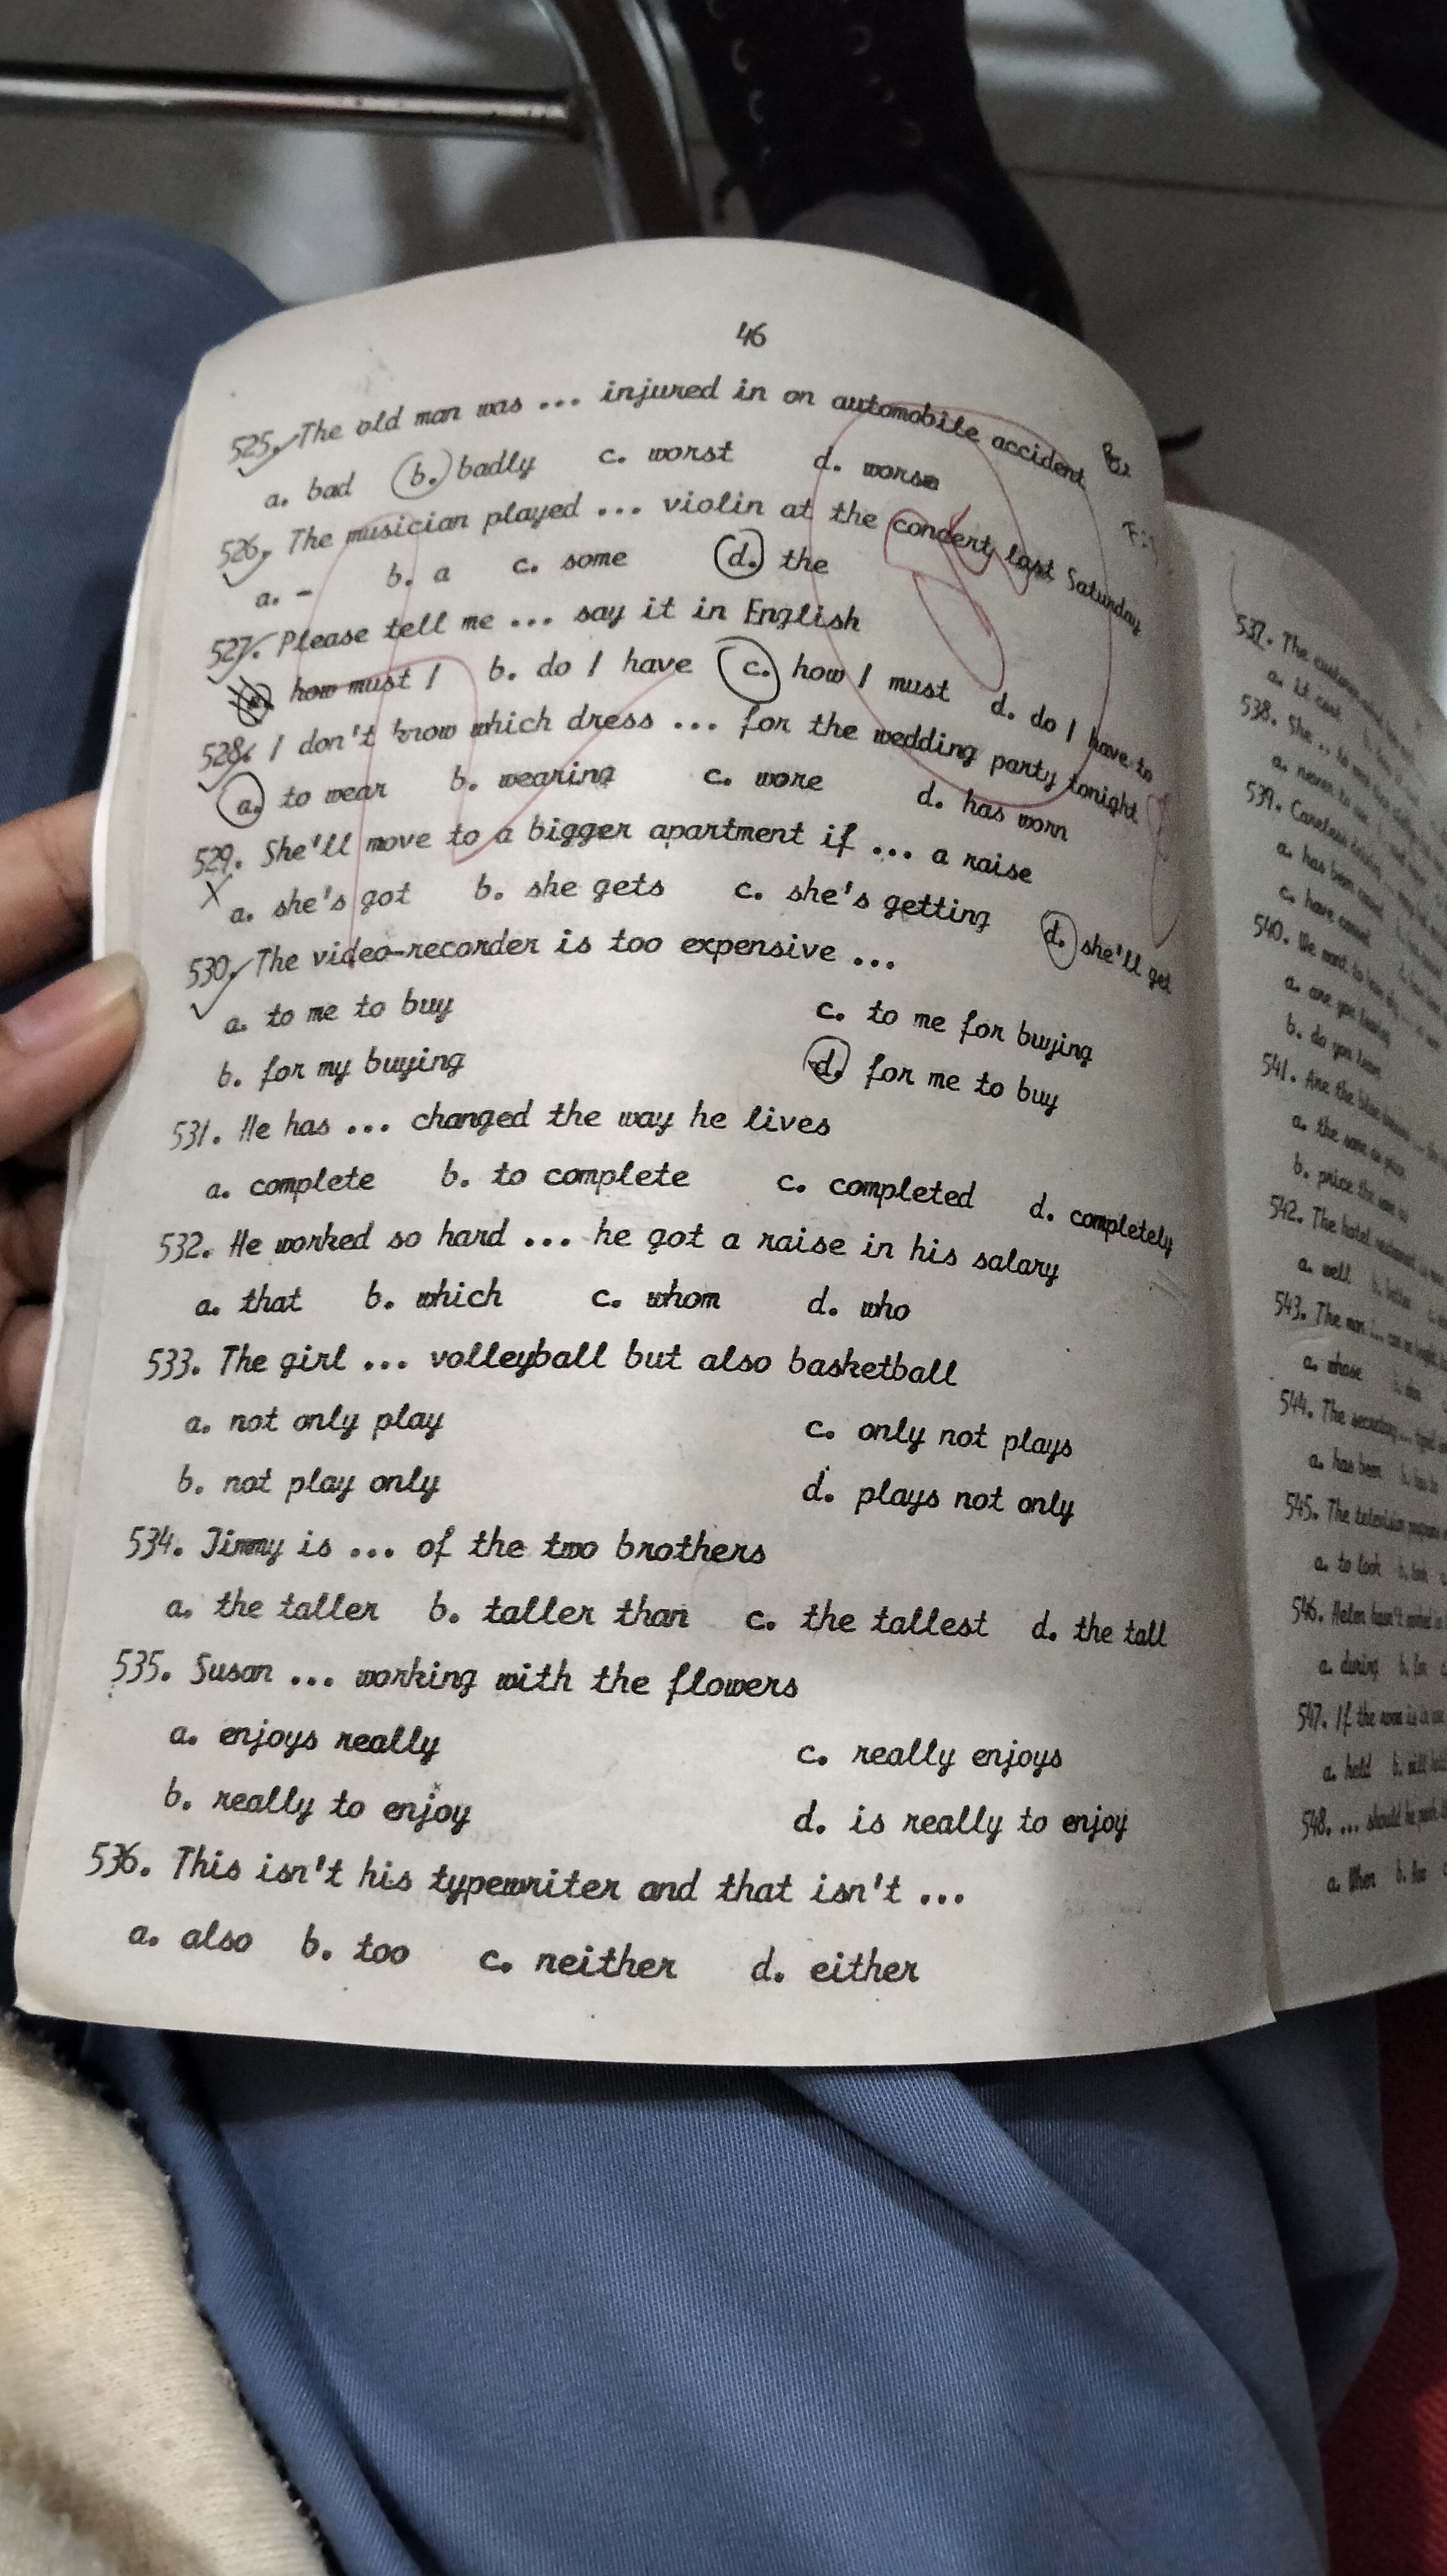 46
525. The old man was ... injured in on automobile accident
a. bad b. badly c. worst d. worse
526. The musician played ... violin at the concert last Saturday
a. - b. a c. some d. the
527. Please tell me ... say it in English
a. how must I b. do I have c. how I must d. do I have to
528. I don't know which dress ... for the wedding party tonight
a. to wear b. wearing c. wore d. has worn
529. She'll move to a bigger apartment if ... a raise
a. she's got b. she gets c. she's getting d. she'll get
530. The video-recorder is too expensive ...
a. to me to buy c. to me for buying
b. for my buying d. for me to buy
531. He has ... changed the way he lives
a. complete b. to complete c. completed d. completely
532. He worked so hard ... he got a raise in his salary
a. that b. which c. whom d. who
533. The girl ... volleyball but also basketball
a. not only play c. only not plays
b. not play only d. plays not only
534. Jimmy is ... of the two brothers
a. the taller b. taller than c. the tallest d. the tall
535. Susan ... working with the flowers
a. enjoys really c. really enjoys
b. really to enjoy d. is really to enjoy
536. This isn't his typewriter and that isn't ...
a. also b. too c. neither d. either
537. The
a. it cost
538. She ... to
a. never to
539. Careless
a. has been
c. have
540. We want to
a. are you
b. do you
541. Are the blue
a. the same as
b. price the same
542. The hotel
a. well b. better
543. The man ... can
a. whose
544. The secretary ...
a. has been
545. The television
a. to look b. look
546. Helen hasn't
a. during b. for
547. If the room is
a. held b. will
548. ... should he
a. When